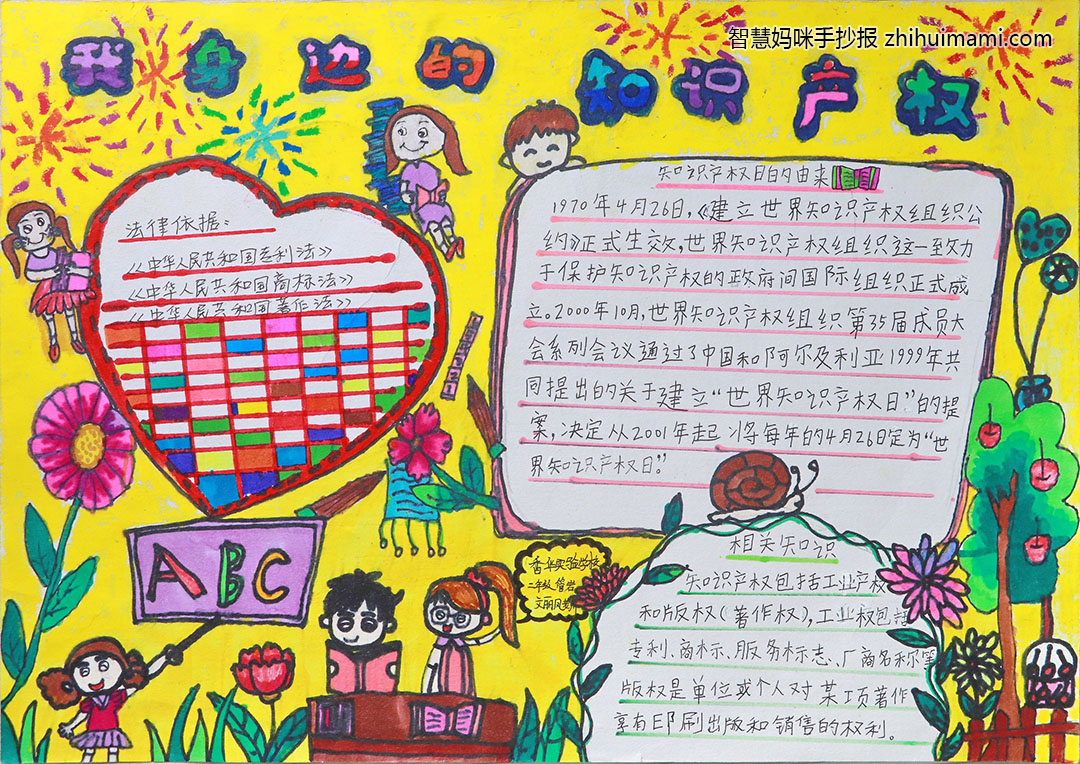 智慧妈咪手抄报 zhihuimami.com
我身边的
知识产权
法律依据：
《中华人民共和国专利法》
《中华人民共和国商标法》
《中华人民共和国著作法》
知识产权日的由来
1970年4月26日，《建立世界知识产权组织公
约》正式生效，世界知识产权组织这一致力
于保护知识产权的政府间国际组织正式成
立。2000年10月，世界知识产权组织第35届成员大
会系列会议通过了中国和阿尔及利亚1999年共
同提出的关于建立“世界知识产权日”的提
案，决定从2001年起 将每年的4月26日定为“世
界知识产权日。”
ABC
香华实验学校
二年级
相关知识
知识产权包括工业产权
和版权（著作权），工业权包括
专利、商标、服务标志、厂商名称等
版权是单位或个人对某项著作
享有印刷出版和销售的权利。